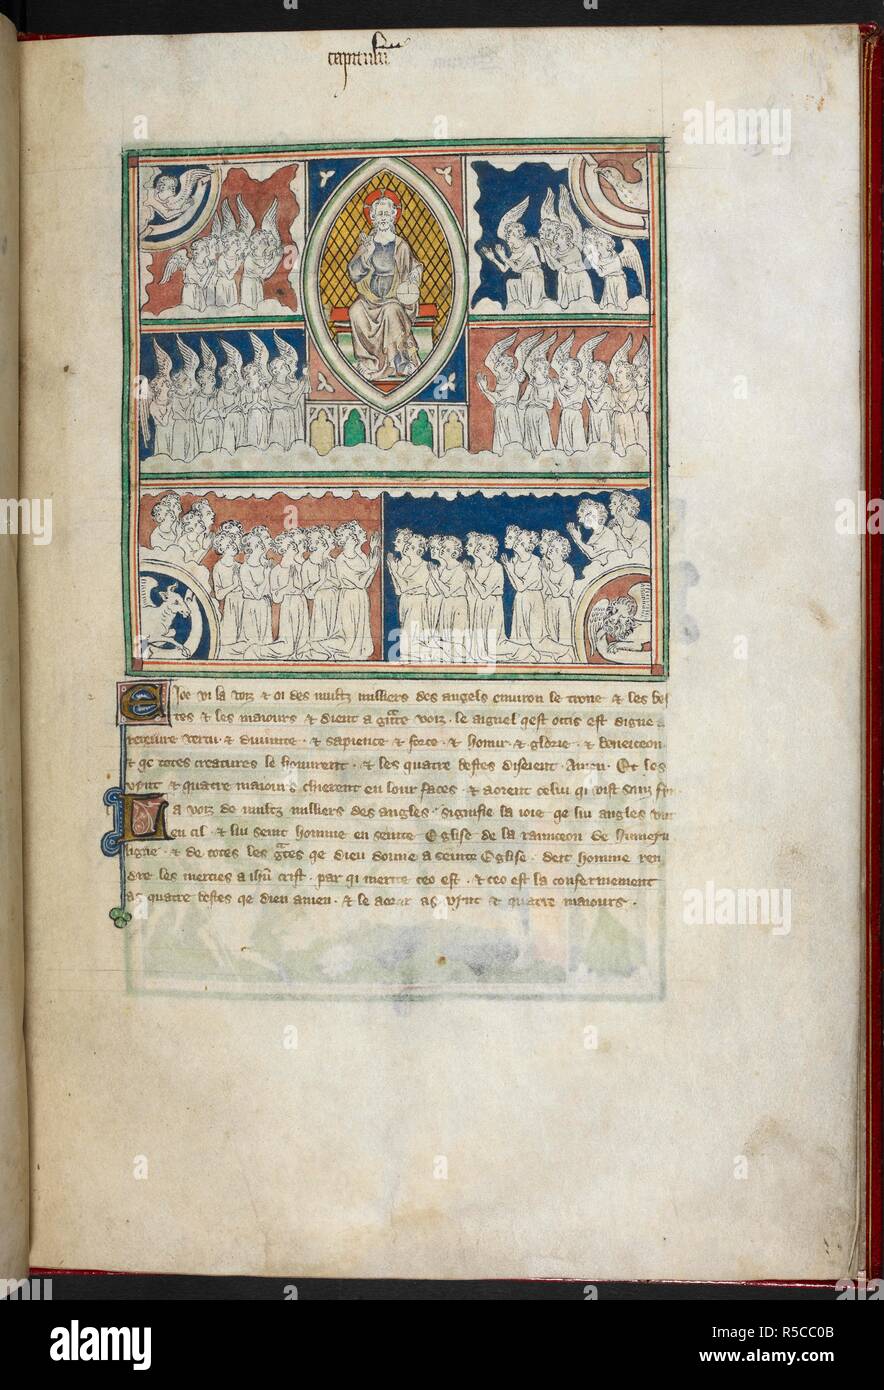 capitulu
E Joe vi la voiz & oi des multz milliers des angels environ le trone & les bes
tes & les maiours & dient a gnte voiz . le aignel qest occis est digne a
receiure vertu . & diuinite . & sapience & force . & honur . & glorie . & beneiceon .
& qe totes creatures le honurent . & les quatre bestes diseient . Amen . Et les
vint & quatre maiours chierent en lour faces . & aorent celui qi vist sanz fin
La voiz de multz milliers des angles . signifie la ioie qe liu angles vnt
en ciel & liu seint homme en seinte Eglise de la ranceon de humein
ligne . & de totes les gces qe dieu donne a seinte Eglise . deit homme ren
dre les mercies a ihu crist . par qi merite ceo est . & ceo est la confermement
as quatre bestes qe dieu amen . & le aorer as vint & quatre maiours .
alamy
Image ID: R5CC0B
www.alamy.com